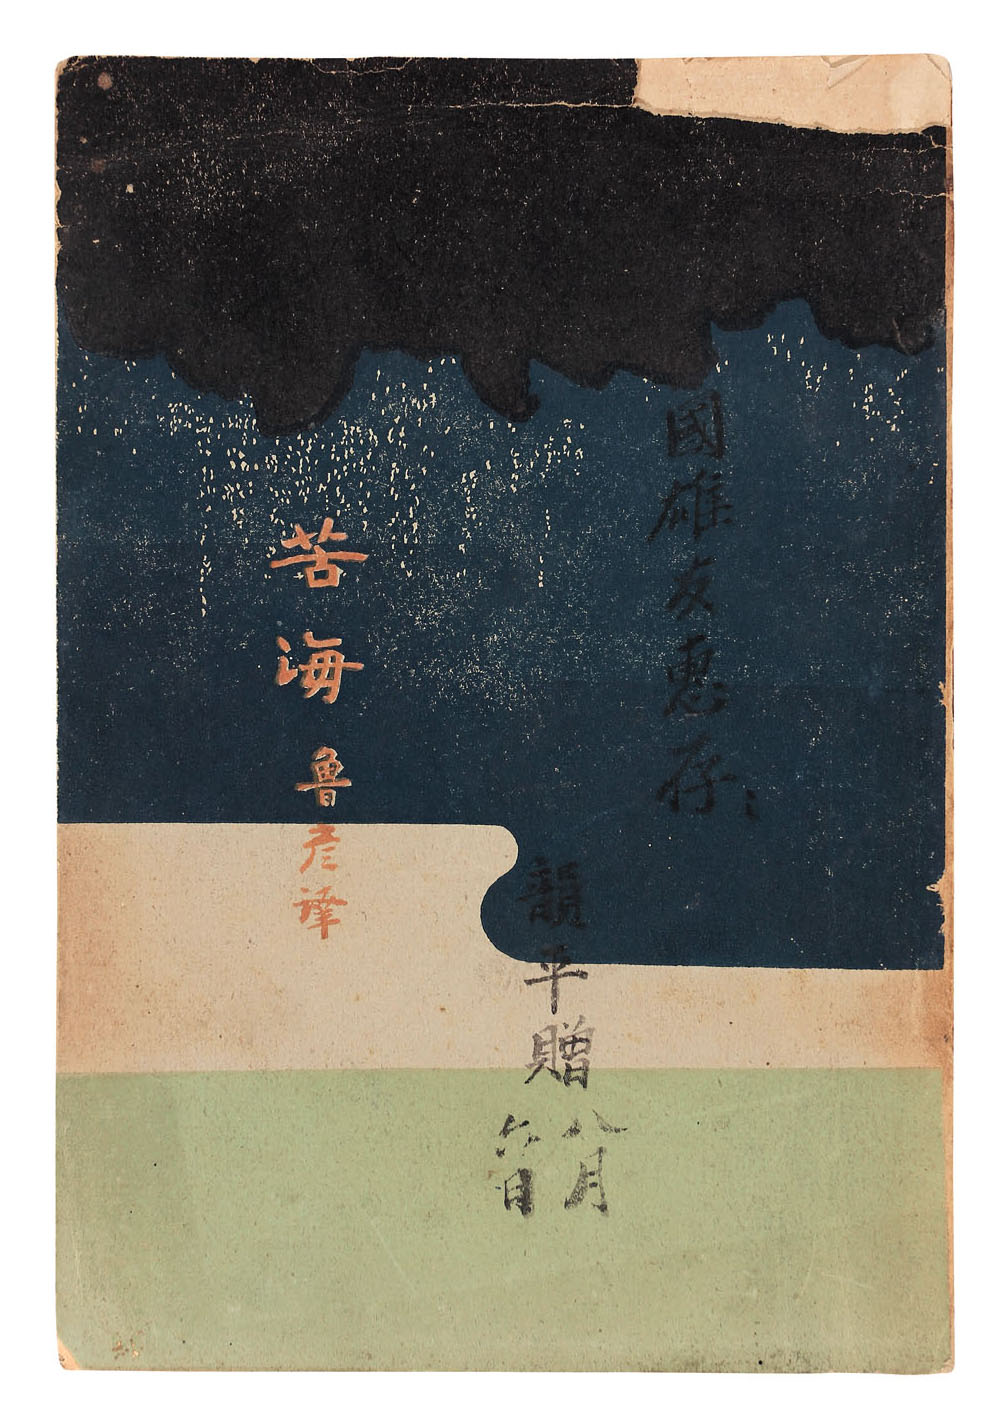 國雄友惠存
韻平贈
八月
六日
苦海 魯彥譯